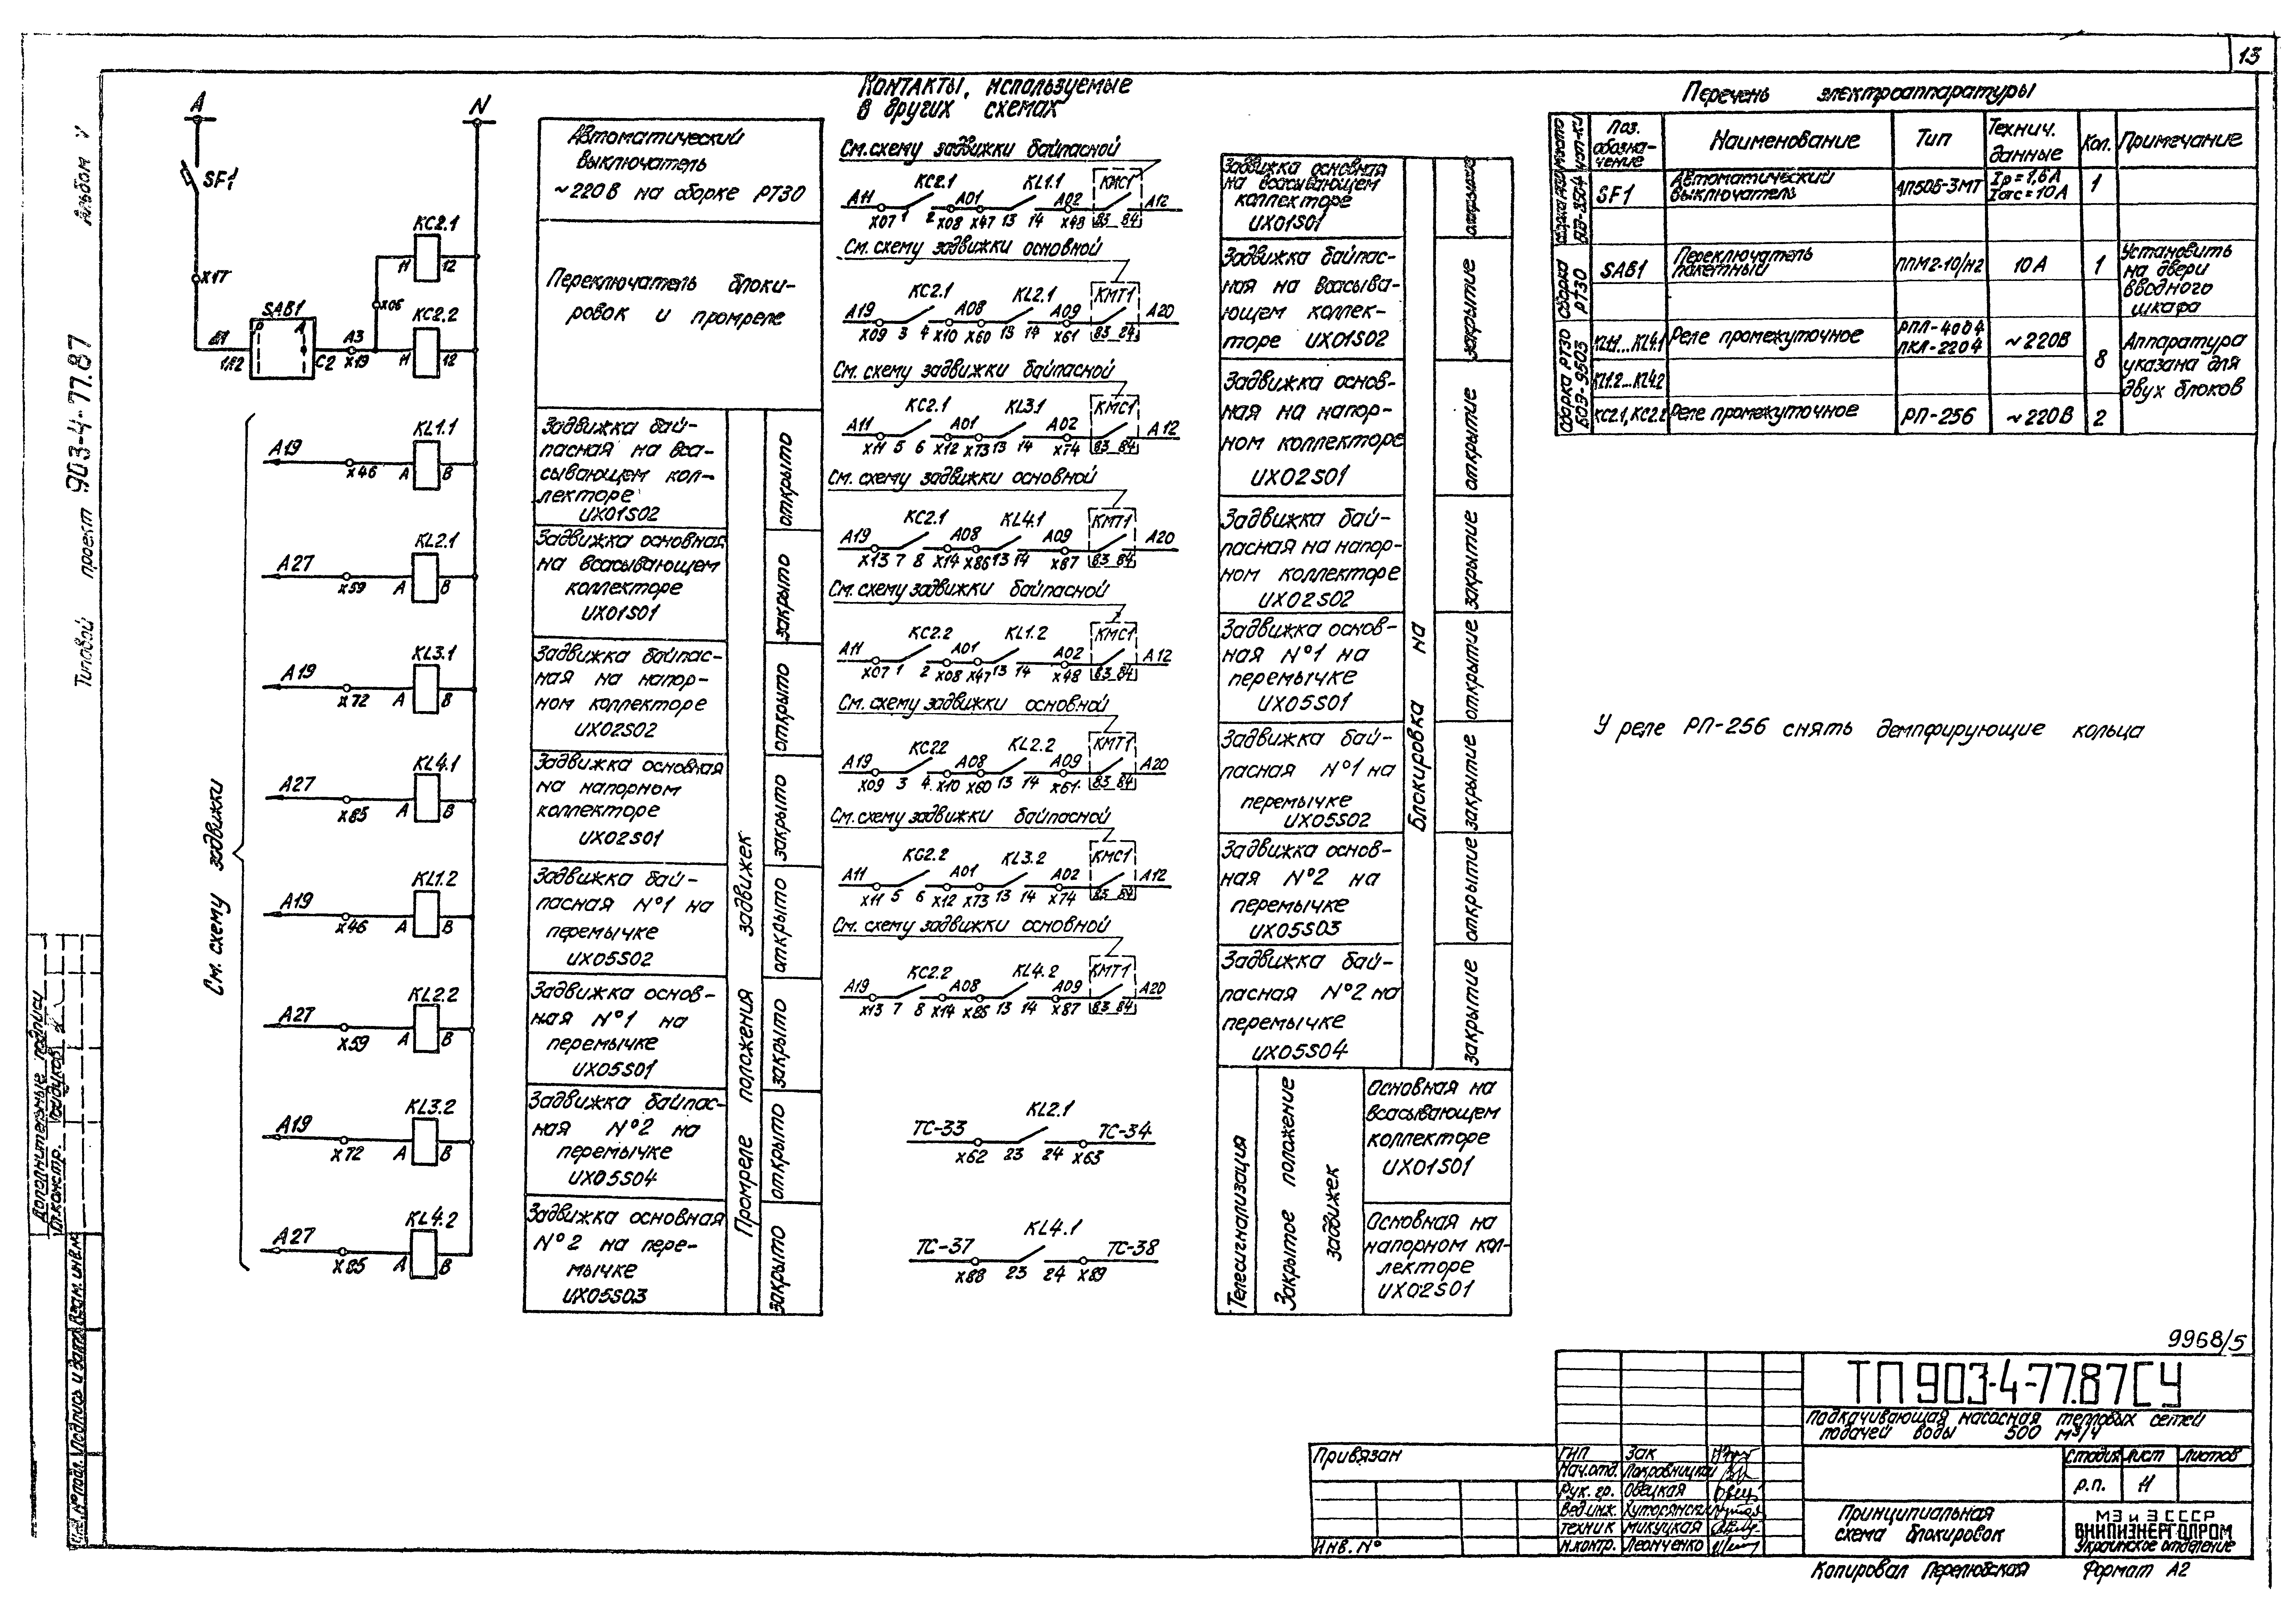 13
Альбом V
Типовой проект 903-4-77.87
Контакты, используемые
в других схемах
А
N
SF1
X17
SAB1
C2
А3
X19
X06
KC2.1
11 12
KC2.2
11 12
См. схему задвижки
А19 X46 А KL1.1 В
А27 X59 А KL2.1 В
А19 X72 А KL3.1 В
А27 X85 А KL4.1 В
А19 X46 А KL1.2 В
А27 X59 А KL2.2 В
А19 X72 А KL3.2 В
А27 X85 А KL4.2 В
Автоматический
выключатель
~220В на сборке РТ30
Переключатель блоки-
ровок и промреле
Задвижка бай-
пасная на вса-
сывающем кол-
лекторе
UX01S02
открыто
Задвижка основная
на всасывающем
коллекторе
UX01S01
закрыто
Задвижка байпас-
ная на напор-
ном коллекторе
UX02S02
открыто
Задвижка основная
на напорном
коллекторе
UX02S01
закрыто
Задвижка бай-
пасная №1 на
перемычке
UX05S02
открыто
Задвижка основ-
ная №1 на
перемычке
UX05S01
закрыто
Задвижка байпас-
ная №2 на
перемычке
UX05S04
открыто
Задвижка основная
№2 на пере-
мычке
UX05S03
закрыто
Промреле положения задвижек
См. схему задвижки байпасной
KC2.1 KL1.1 КМС1
А11 А01 А02 А12
X07 1 2 X08 X47 13 14 X48 83 84
См. схему задвижки основной
KC2.1 KL2.1 КМТ1
А19 А08 А09 А20
X09 3 4 X10 X60 13 14 X61 83 84
См. схему задвижки байпасной
KC2.1 KL3.1 КМС1
А11 А01 А02 А12
X11 5 6 X12 X73 13 14 X74 83 84
См. схему задвижки основной
KC2.1 KL4.1 КМТ1
А19 А08 А09 А20
X13 7 8 X14 X86 13 14 X87 83 84
См. схему задвижки байпасной
KC2.2 KL1.2 КМС1
А11 А01 А02 А12
X07 1 2 X08 X47 13 14 X48 83 84
См. схему задвижки основной
KC2.2 KL2.2 КМТ1
А19 А08 А09 А20
X09 3 4 X10 X60 13 14 X61 83 84
См. схему задвижки байпасной
KC2.2 KL3.2 КМС1
А11 А01 А02 А12
X11 5 6 X12 X73 13 14 X74 83 84
См. схему задвижки основной
KC2.2 KL4.2 КМТ1
А19 А08 А09 А20
X13 7 8 X14 X86 13 14 X87 83 84
KL2.1
ТС-33 ТС-34
X62 23 24 X63
KL4.1
ТС-37 ТС-38
X88 23 24 X89
Задвижка основная
на всасывающем
коллекторе
UX01S01
открытие
Задвижка байпас-
ная на всасыва-
ющем коллек-
торе UX01S02
закрытие
Задвижка основ-
ная на напор-
ном коллекторе
UX02S01
открытие
Задвижка бай-
пасная на напор-
ном коллекторе
UX02S02
закрытие
Задвижка основ-
ная №1 на
перемычке
UX05S01
открытие
Задвижка бай-
пасная №1 на
перемычке
UX05S02
закрытие
Задвижка основ-
ная №2 на
перемычке
UX05S03
открытие
Задвижка бай-
пасная №2 на
перемычке
UX05S04
закрытие
Блокировка на
Телесигнализация
Закрытое положение
задвижек
Основная на
всасывающем
коллекторе
UX01S01
Основная на
напорном кол-
лекторе
UX02S01
Перечень электроаппаратуры
Поз. обозна-чение Наименование Тип Технич. данные Кол. Примечание
SF1 Автоматический выключатель АП50Б-3МТ Iр=1,6А Iотс=10А 1
Сборка РТ30
SAB1 Переключатель пакетный ППМ2-10/Н2 10А 1 Установить на двери вводного шкафа
Сборка РТ30 БОЭ-9503
KL1.1...KL4.1 Реле промежуточное РПЛ-4004 ПКЛ-2204 ~220В 8 Аппаратура указана для двух блоков
KL1.2...KL4.2
KC2.1, KC2.2 Реле промежуточное РП-256 ~220В 2
У реле РП-256 снять демпфирующие кольца
9968/5
ТП 903-4-77.87 СУ
Подкачивающая насосная тепловых сетей
подачей воды 500 м³/ч
Привязан
Инв. №
ГИП Зак
Нач.отд. Покровницкий
Рук. гр. Овецкая
Вед.инж.
Техник Микуцкая
Н.контр. Леонченко
Стадия Лист Листов
р.п. 11
Принципиальная
схема блокировок
МЭ и Э СССР
ВНИПИЭНЕРГОПРОМ
Украинское отделение
Копировал Перелювская Формат А2
Дополнительные подписи
Гл.констр.
Инв.№ подл. Подпись и дата Взам. инв.№